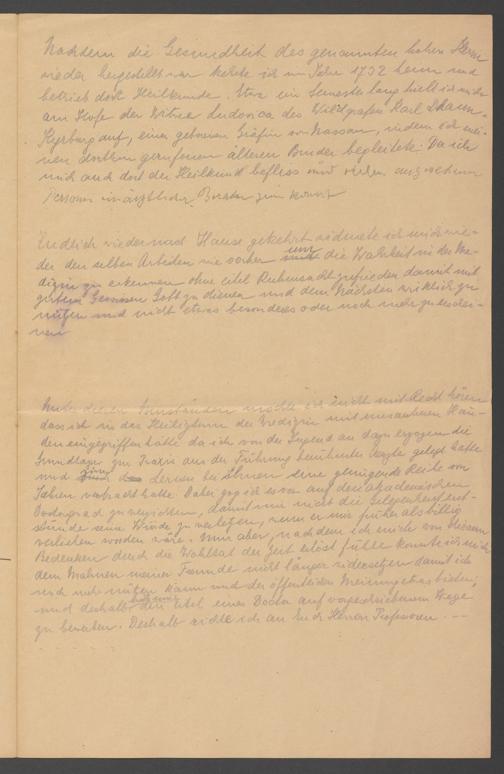 Nachdem die Gesundheit des genannten hohen Herrn
wieder hergestellt war kehrte ich im Jahre 1732 heim und
betrieb dort Heilkunde. Etwa ein Semester lang hielt ich mich
am Hofe der Witwe Ludovica des Wildgrafen Karl Dhaun-
Kyrburg auf, einer geborenen Gräfin von Nassau, indem ich mei-
nen dorthin gerufenen älteren Bruder begleitete. Da ich
mich auch dort der Heilkunst befliss und vielen angesehenen
Personen in ärztlicher Berater sein konnte
Endlich wieder nach Hause gekehrt widmete ich mich wie-
der den selben Arbeiten wie vorher um die Wahrheit in der Me-
dizin zu erkennen ohne eitel Ruhmsucht zufrieden damit mit
gutem Gewissen Gott zu dienen und dem Nächsten wirklich zu
nützen und nicht etwas besonderes oder noch mehr zu schei-
nen
Unter diesen Umständen möchte ich nicht mit Recht hören
dass ich in das Heiligtum der Medizin mit unsauberen Hän-
den eingegriffen hätte da ich von der Jugend an dazu erzogen die
Grundlage zur Praxis aus der Führung berühmter Ärzte gelegt hatte
und zum Lernen bei Ihnen eine genügende Reihe von
Jahren verbracht hatte. Daher zog ich es vor auf den akademischen
Doktorgrad zu verzichten, damit mir nicht die Gelegenheit ent-
stünde seine Würde zu verletzen, wenn er mir früher als billig
verliehen worden wäre. Nun aber, nachdem ich mich von diesem
Bedenken durch die Wohltat der Zeit erlöst fühle konnte ich mich
dem Mahnen meiner Freunde nicht länger widersetzen damit ich
noch mehr nützen kann und der öffentlichen Meinung
und deshalb den Titel eines Doctor auf vorgeschriebenem Wege
zu bewerben. Deshalb richte ich an Euch Herren Professoren. —